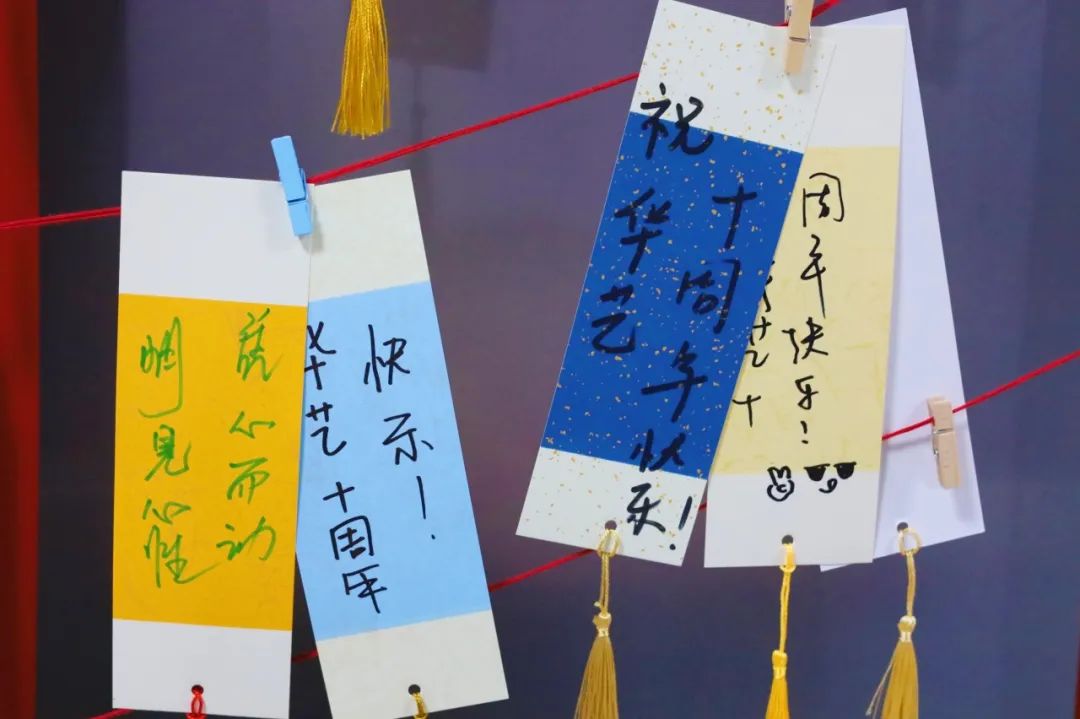 心而动
明見心性
华艺十周年
快乐！
祝华艺
十周年快乐！
艺十
周年快乐！